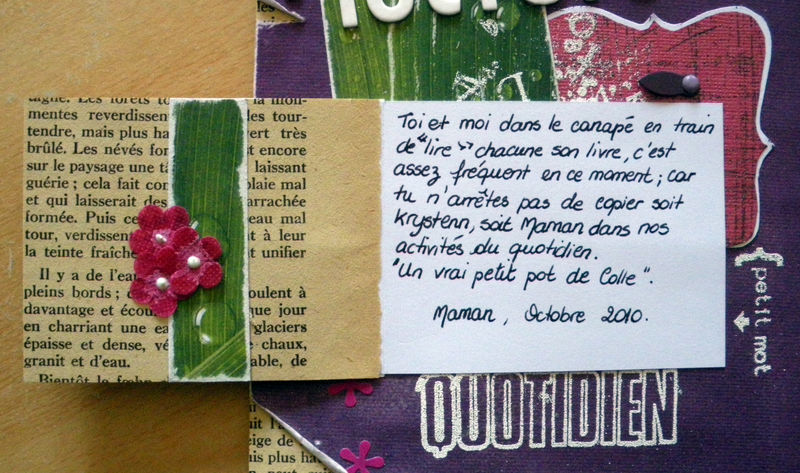 aigne. Les forêts to la mon-
mentes reverdissent des tour-
tendre, mais plus ha vert très
brûlé. Les névés for t encore
sur le paysage une tâ laissant
guérie ; cela fait com plaie mal
et qui laisserait des arrachée
formée. Puis ce eau mal
tour, verdissent à leur
la teinte fraîche unifier
Il y a de l'eau
pleins bords ; d oulent à
davantage et écou que jour
en charriant une ea glaciers
épaisse et dense, vé chaux,
granit et d'eau. able, de
Bientôt la fœhn
Toi et moi dans le canapé en train
de "lire" chacune son livre, c'est
assez fréquent en ce moment ; car
tu n'arrêtes pas de copier soit
Krystenn, soit Maman dans nos
activités du quotidien.
"Un vrai petit pot de Colle".
Maman, Octobre 2010.
petit mot
QUOTIDIEN